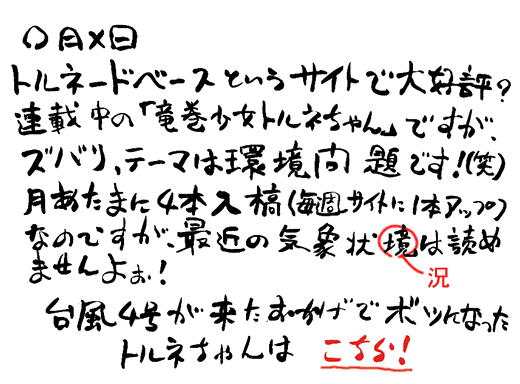 ○月×日
トルネードベースというサイトで大好評?
連載中の「竜巻少女トルネちゃん」ですが、
ズバリ、テーマは環境問題です!(笑)
月あたまに4本入稿(毎週サイトに1本アップ)
なのですが、最近の気象状境は読め
況
ませんよぉ!
台風4号が来たおかげでボツになった
トルネちゃんは こちら!